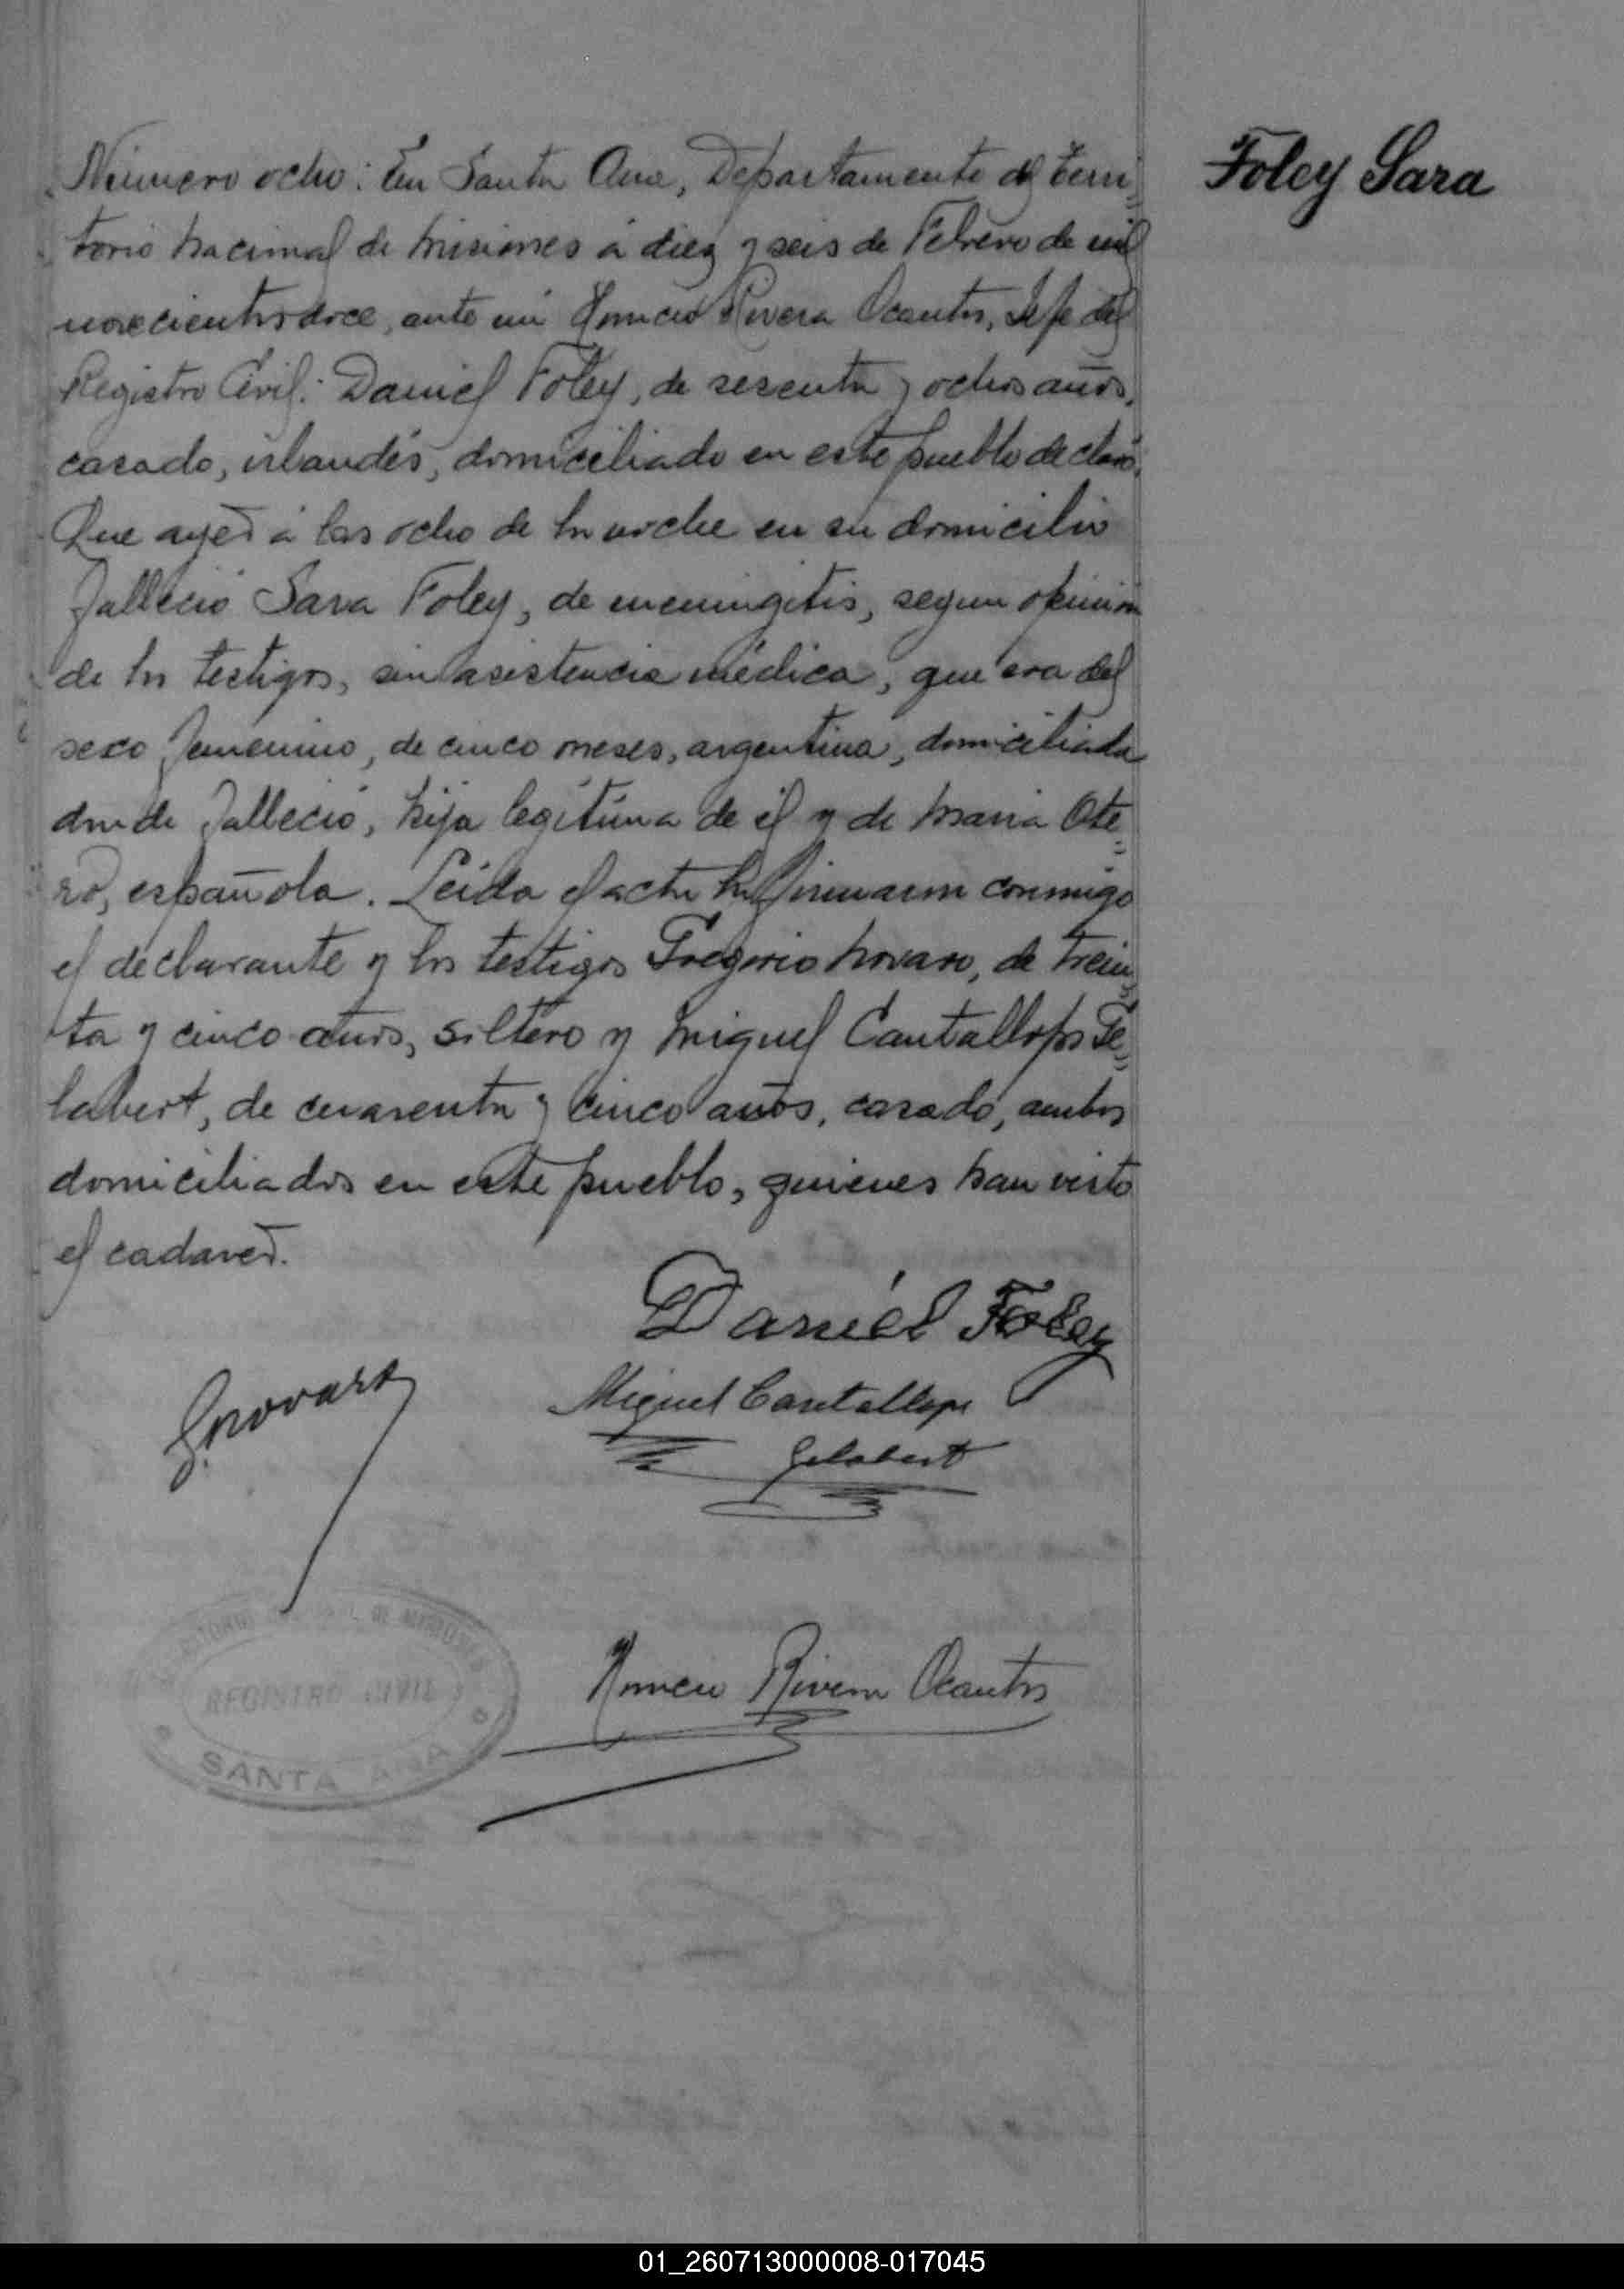 Foley Sara
Número ocho: En Santa Ana, Departamento del Terri=
torio Nacional de Misiones á diez y seis de Febrero de mil
novecientos doce, ante mi Horacio Rivera Ocantos, Jefe del
Registro Civil: Daniel Foley, de sesenta y ochos años,
casado, irlandés, domiciliado en este pueblo declaró:
Que ayer á las ocho de la noche en su domicilio
falleció Sara Foley, de meningitis, segun opinión
de los testigos, sin asistencia médica, que era del
sexo femenino, de cinco meses, argentina, domiciliada
donde falleció, hija legítima de él y de Maria Ote=
ro, española. Leida el acta la firmaron conmigo
el declarante y los testigos Gregorio Novaro, de trein=
ta y cinco años, soltero y Miguel Cantallops Ge=
labert, de cuarenta y cinco años, casado, ambos
domiciliados en este pueblo, quienes han visto
el cadaver.
Daniél Foley
G. Novaro
Miguel Cantallops
Gelabert
Horacio Rivera Ocantos
REGISTRO CIVIL
SANTA ANA
01_260713000008-017045